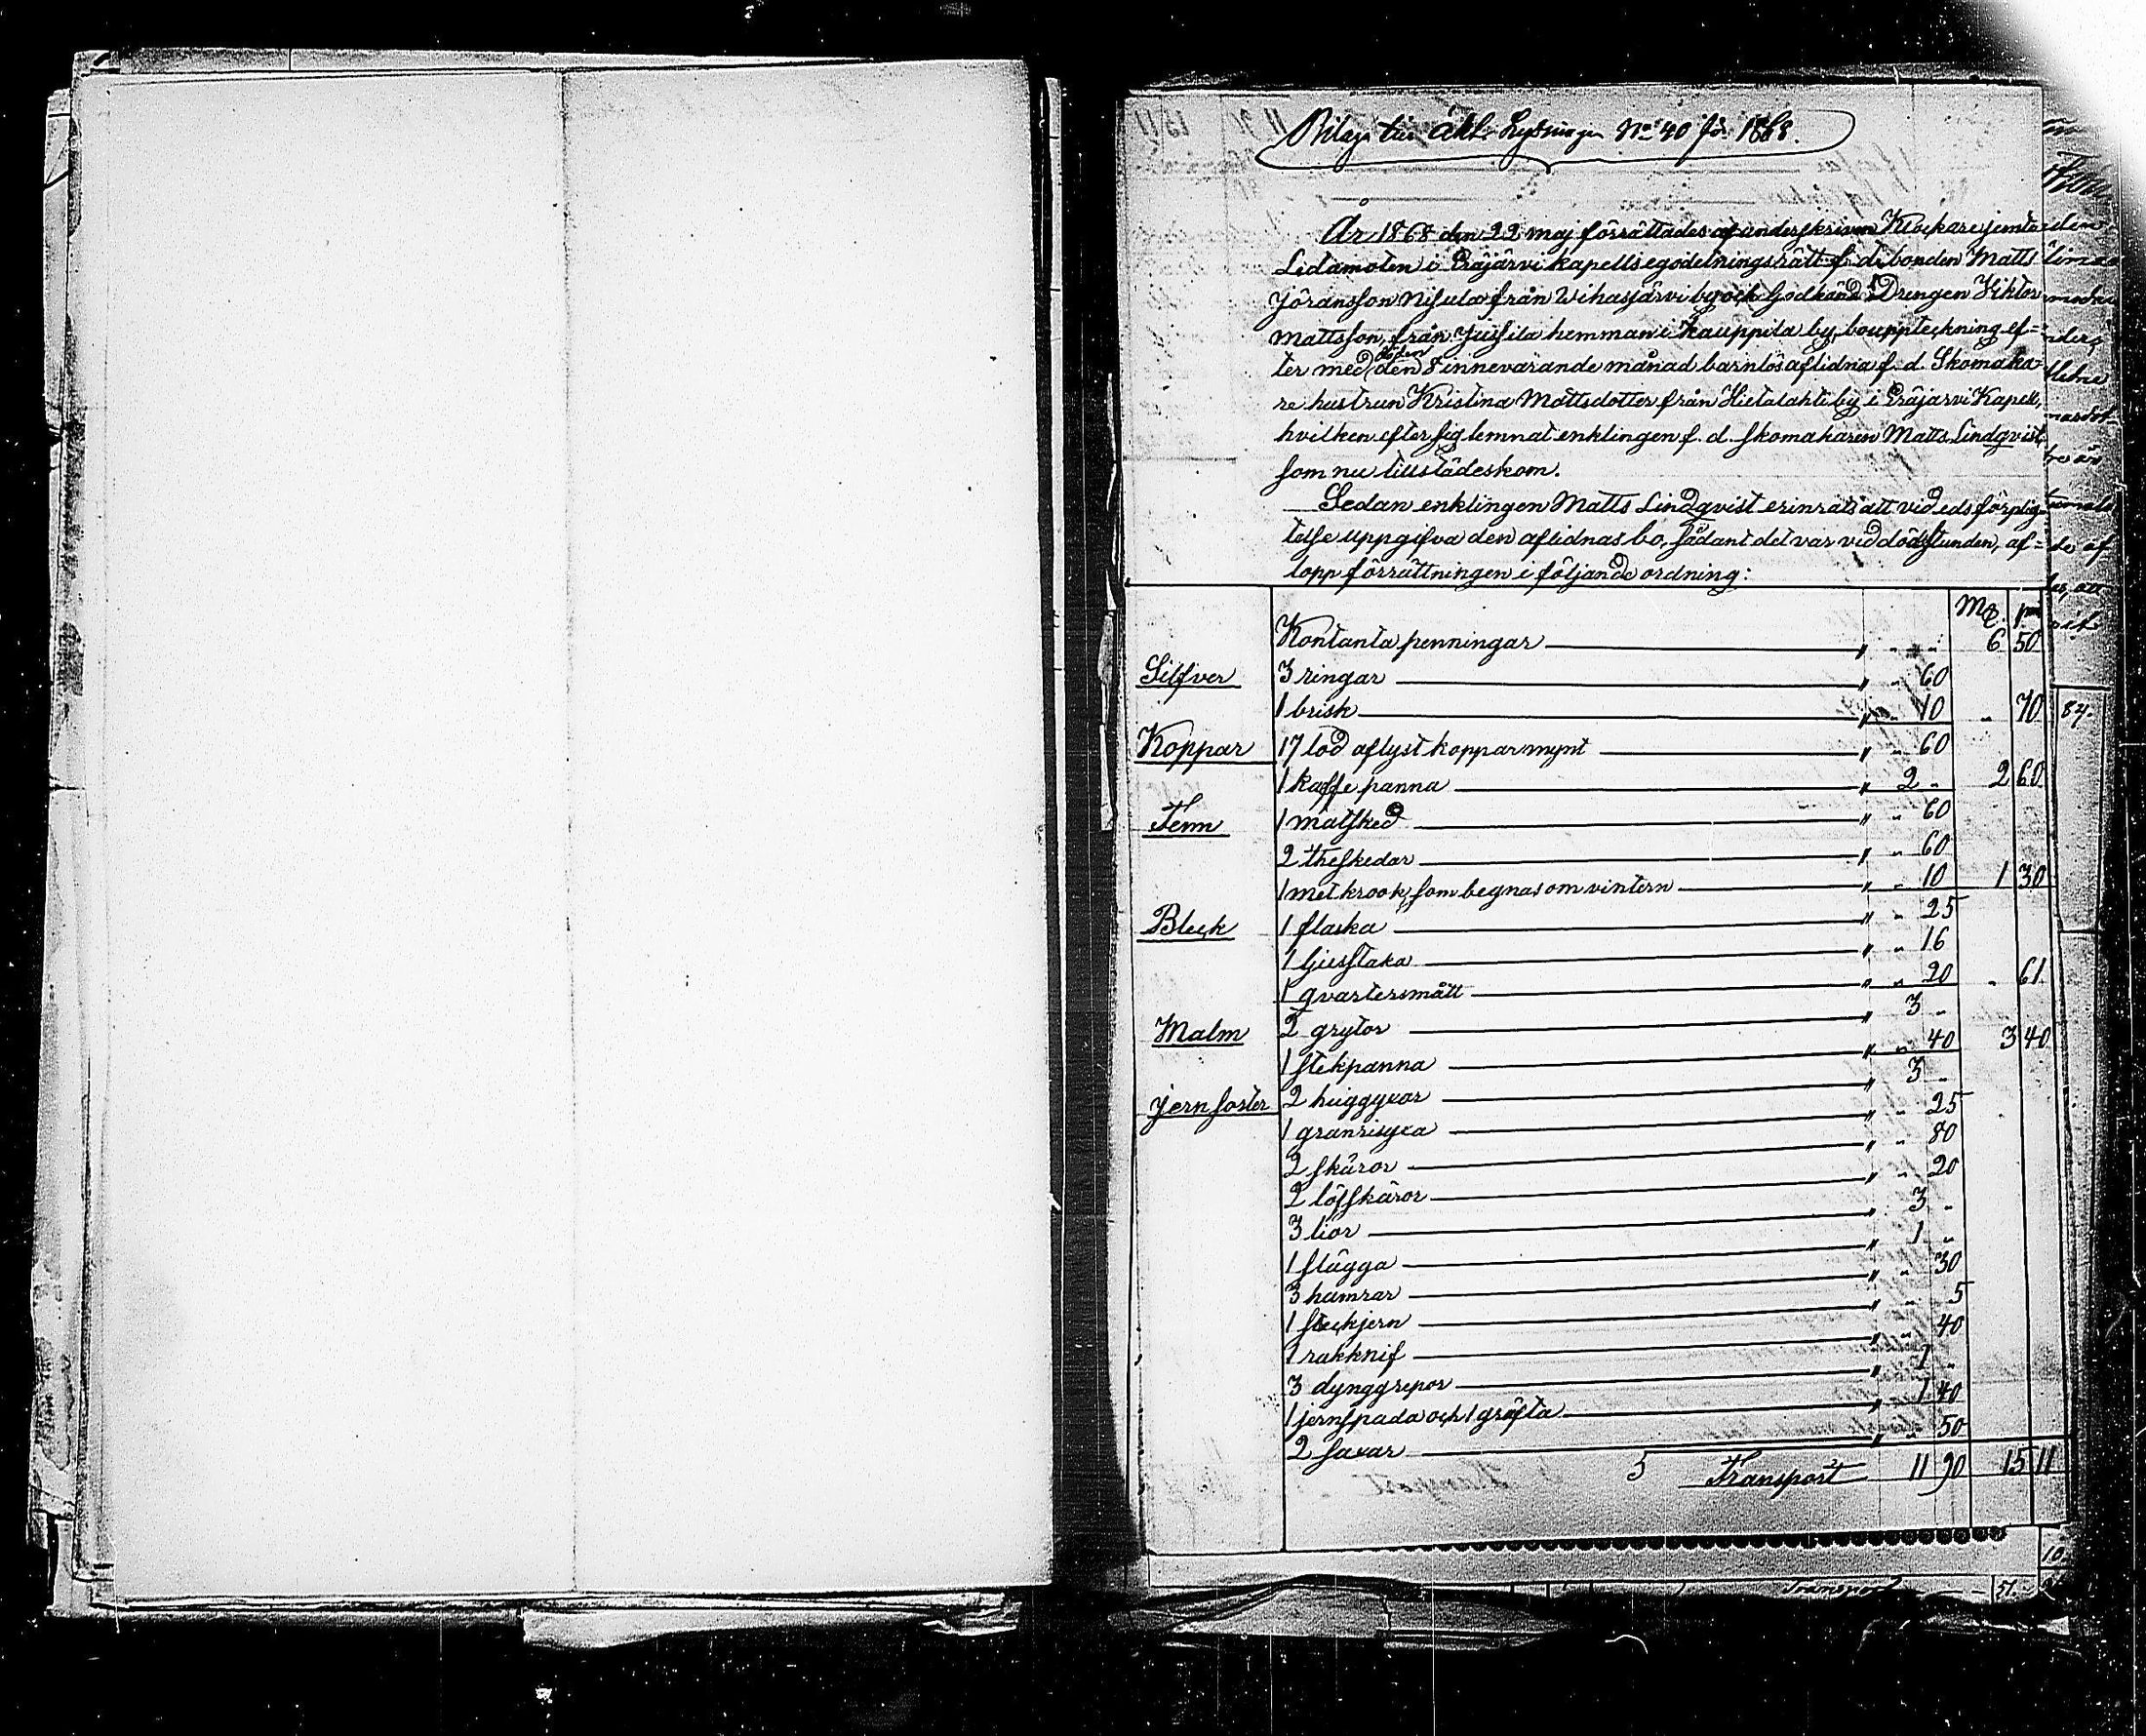 Bilaga till äkt. Lysningen No 40 för 1868.
År 1868 den 22 maj förrättades af underskriven Klockare jemte
Ledamoten i Eräjärvi kapells egodelningsrätt f. d. bonden Matts
Jöransson Nisula från Wihasjärvi by och Godkänd Drengen Viktor
Mattsson, från Jussila hemman i Kauppila by, bouppteckning ef=
ter med döden den 8 innevarande månad barnlös aflidna f. d. Skomaka-
re hustrun Kristina Mattsdotter från Hietalahti by i Eräjärvi Kapell,
hvilken efter sig lemnat enklingen f. d. skomakaren Matts Lindqvist,
som nu tillstädeskom.
Sedan enklingen Matts Lindqvist erinrats att vid eds förplig-
telse uppgifva den aflidnas bo, sådant det var vid dödsstunden, af=
lopp förrättningen i följande ordning:
Mk. pi
Kontanta penningar " " " 6 50
Silfver 3 ringar " " 60
1 brisk " " 10 " 70
Koppar 17 lod aflyst kopparmynt " " 60
1 kaffe panna " 2 " 2 60
Tenn 1 matsked " " 60
2 theskedar " " 60
1 metkrook, som begnas om vintern " " 10 1 30
Bleck 1 flaska " " 25
1 ljusstaka " " 16
1 qvartersmått " " 20 " 61
Malm 2 grytor " 3 "
1 stekpanna " " 40 3 40
Jernsoster 2 huggyxor " 3 "
1 granrisyxa " " 25
2 skäror " " 80
2 löfskäror " " 20
3 lior " 3 "
1 slägga " 1 "
3 hamrar " " 30
1 steckjern " " 5
1 rakknif " " 40
3 dynggrepor " 1 "
1 jernspada och 1 gräfta " 1 40
2 saxar " " 50
5 Transport 11 90 15 11
84.
Transport 51.